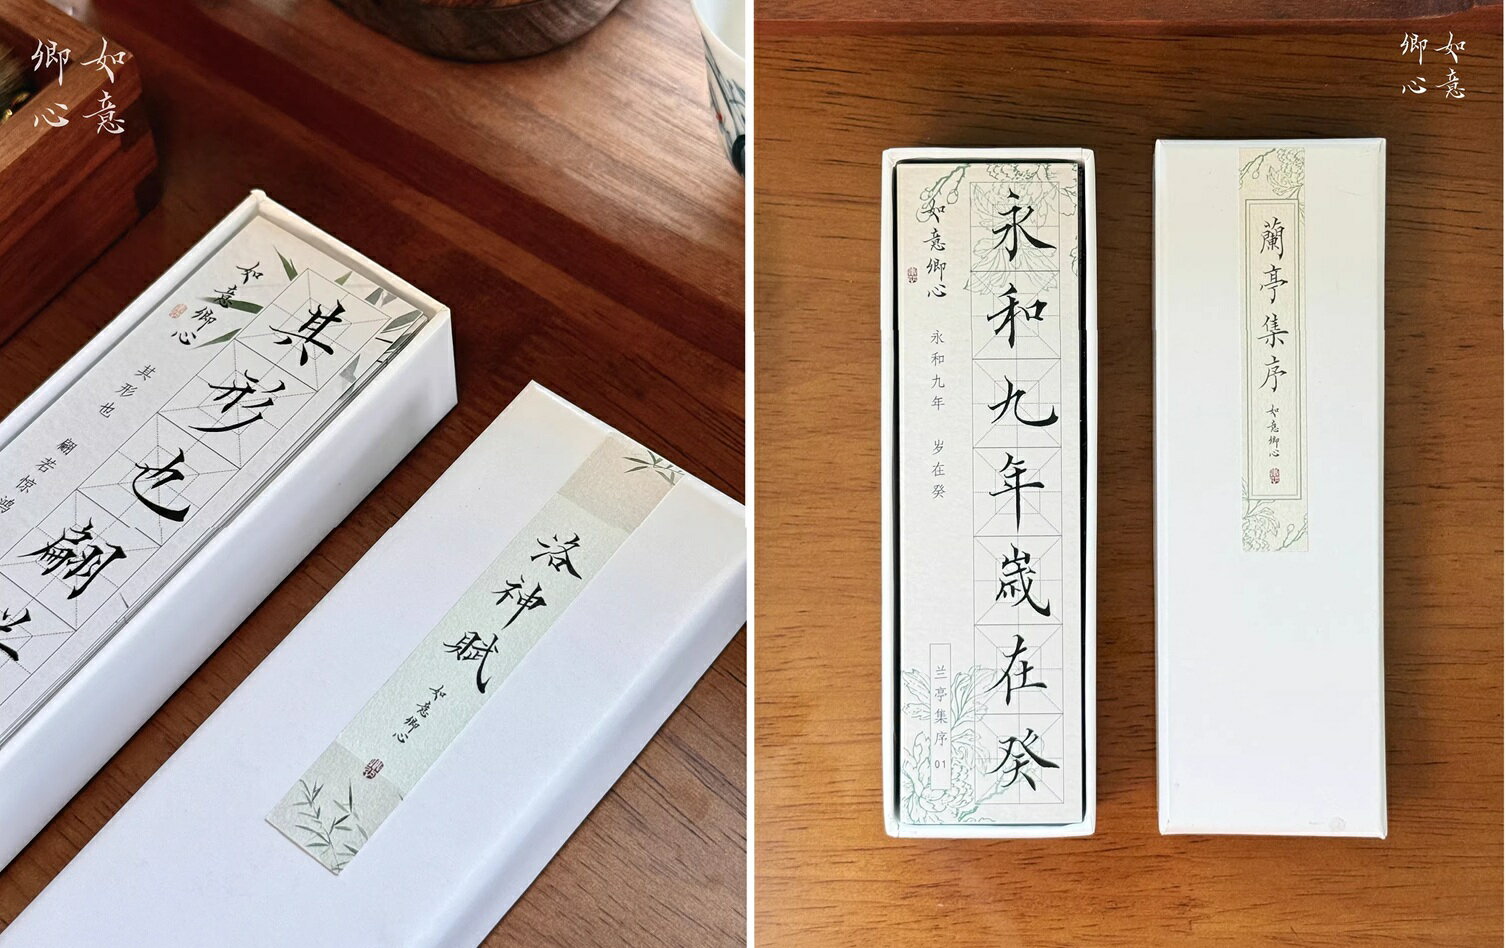 如意
卿心
其形也翩
如意卿心
其形也 翩若惊鸿
洛神賦
如意卿心
如意
卿心
永和九年歲在癸
如意卿心
永和九年 岁在癸
兰亭集序 01
蘭亭集序
如意卿心